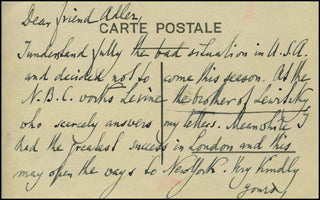 Dear friend Adler,
CARTE POSTALE
I understand fully the bad situation in U.S.A.
and decided not to come this season. At the
N.B.C. works Levine the brother of Levitzky
who scarcely answers my letters. Meanwhile I
had the greatest success in London and this
may open the ways to New York. Very kindly
Yours